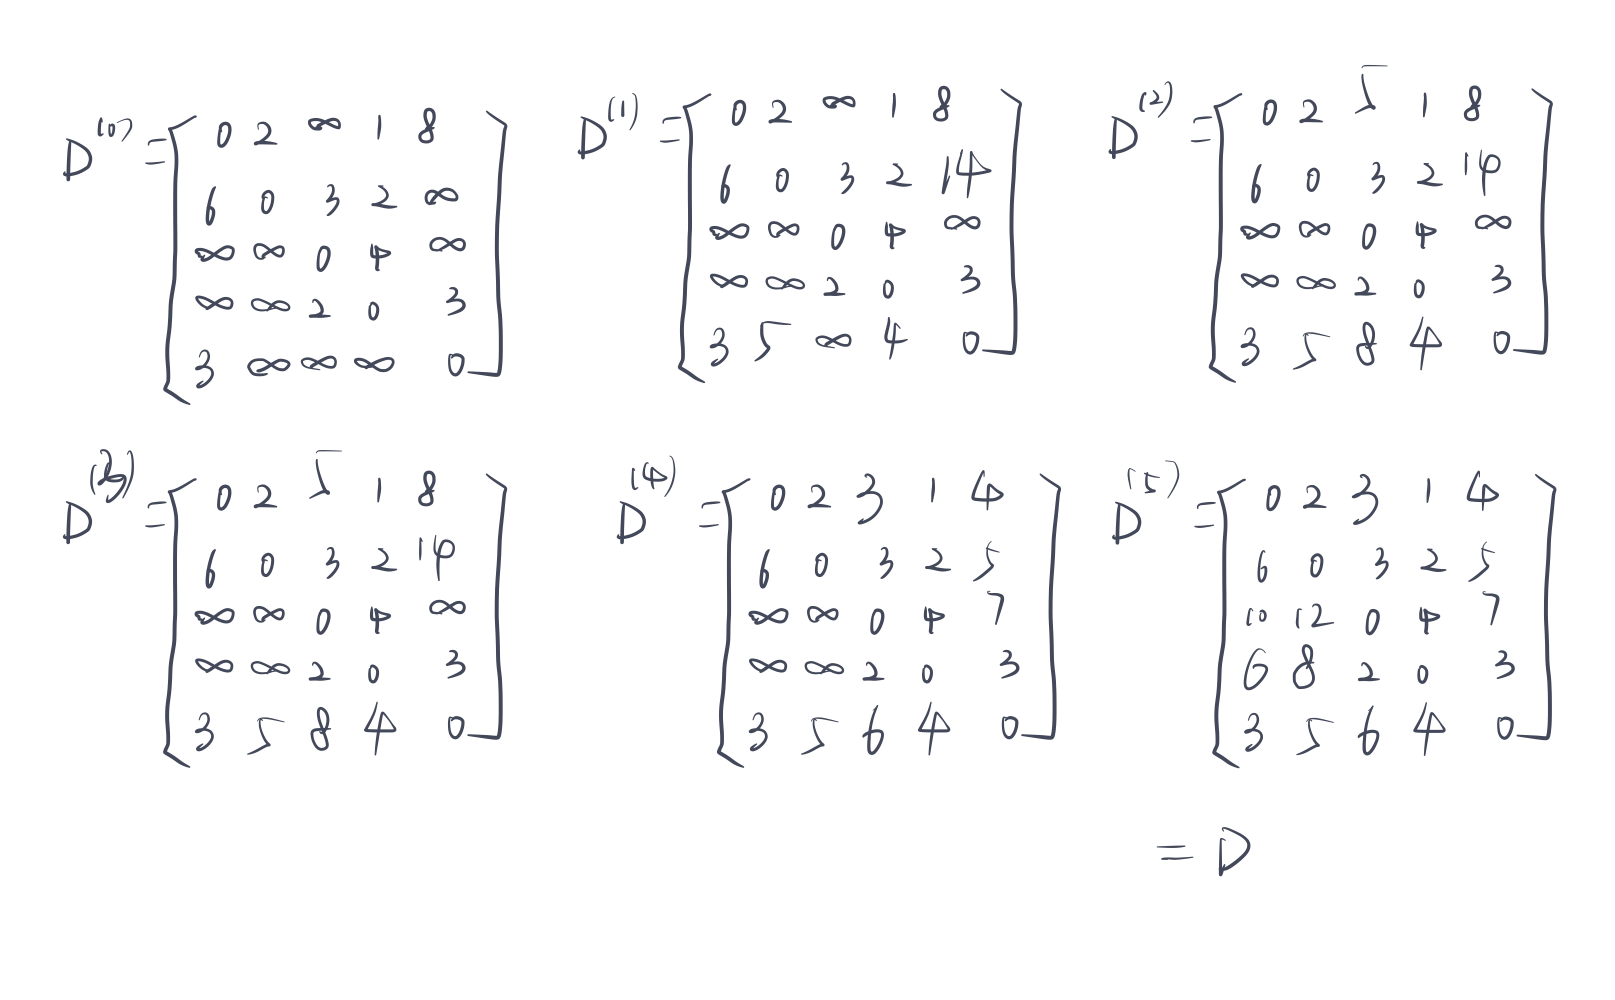 D(0) = [ 0 2 ∞ 1 8
6 0 3 2 ∞
∞ ∞ 0 4 ∞
∞ ∞ 2 0 3
3 ∞ ∞ ∞ 0 ]
D(1) = [ 0 2 ∞ 1 8
6 0 3 2 14
∞ ∞ 0 4 ∞
∞ ∞ 2 0 3
3 5 ∞ 4 0 ]
D(2) = [ 0 2 5 1 8
6 0 3 2 14
∞ ∞ 0 4 ∞
∞ ∞ 2 0 3
3 5 8 4 0 ]
D(3) = [ 0 2 5 1 8
6 0 3 2 14
∞ ∞ 0 4 ∞
∞ ∞ 2 0 3
3 5 8 4 0 ]
D(4) = [ 0 2 3 1 4
6 0 3 2 5
∞ ∞ 0 4 7
∞ ∞ 2 0 3
3 5 6 4 0 ]
D(5) = [ 0 2 3 1 4
6 0 3 2 5
10 12 0 4 7
6 8 2 0 3
3 5 6 4 0 ]
= D